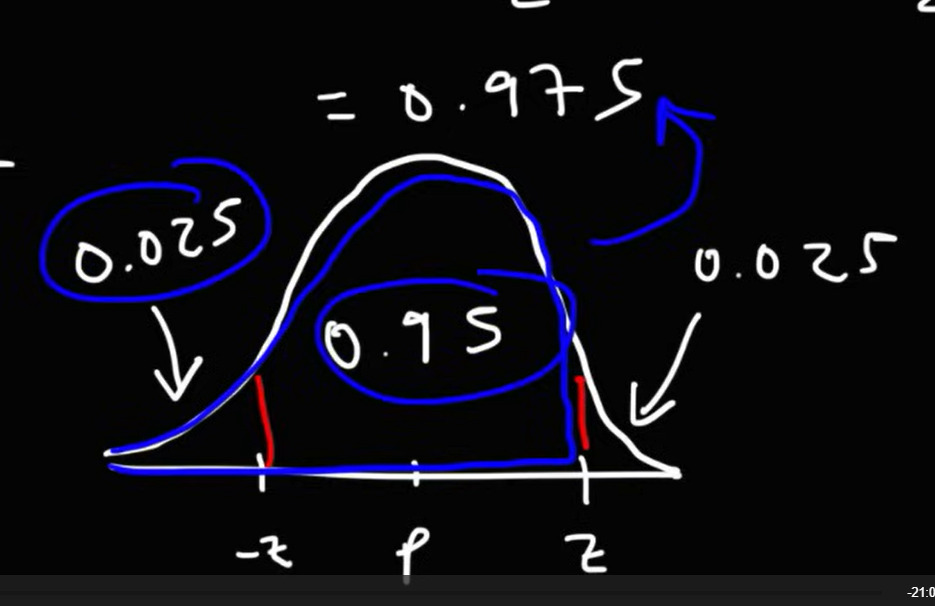 = 0.975
0.025
0.025
0.95
-z
p
z
-21:0